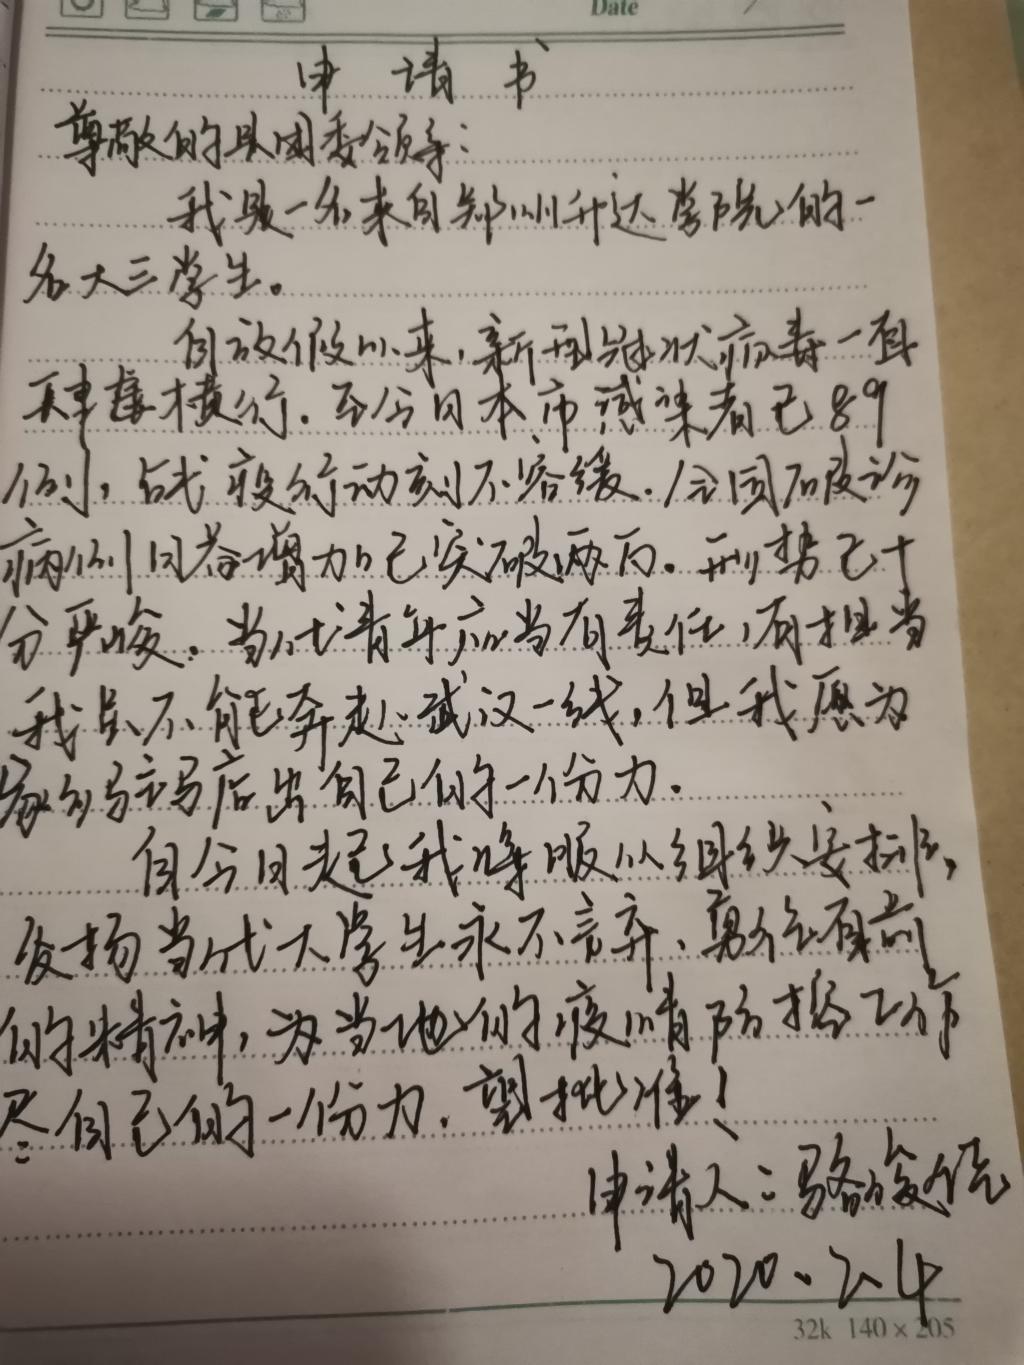 Date
申请书
尊敬的县团委领导：
我是一名来自郑州升达学院的一
名大三学生。
自放假以来，新型冠状病毒一直
肆虐横行。至今日本市感染者已89
例，战疫行动刻不容缓。全国确诊
病例日益增加已突破两万。形势已十
分严峻。当代青年应当有责任，有担当
我虽不能奔赴武汉一线，但我愿为
家乡驻马店出自己的一份力。
自今日起我将服从组织安排，
发扬当代大学生永不言弃、勇往直前
的精神，为当地的疫情防控工作
尽自己的一份力。望批准！
申请人：骆俊
2020、2.4
32k 140×205